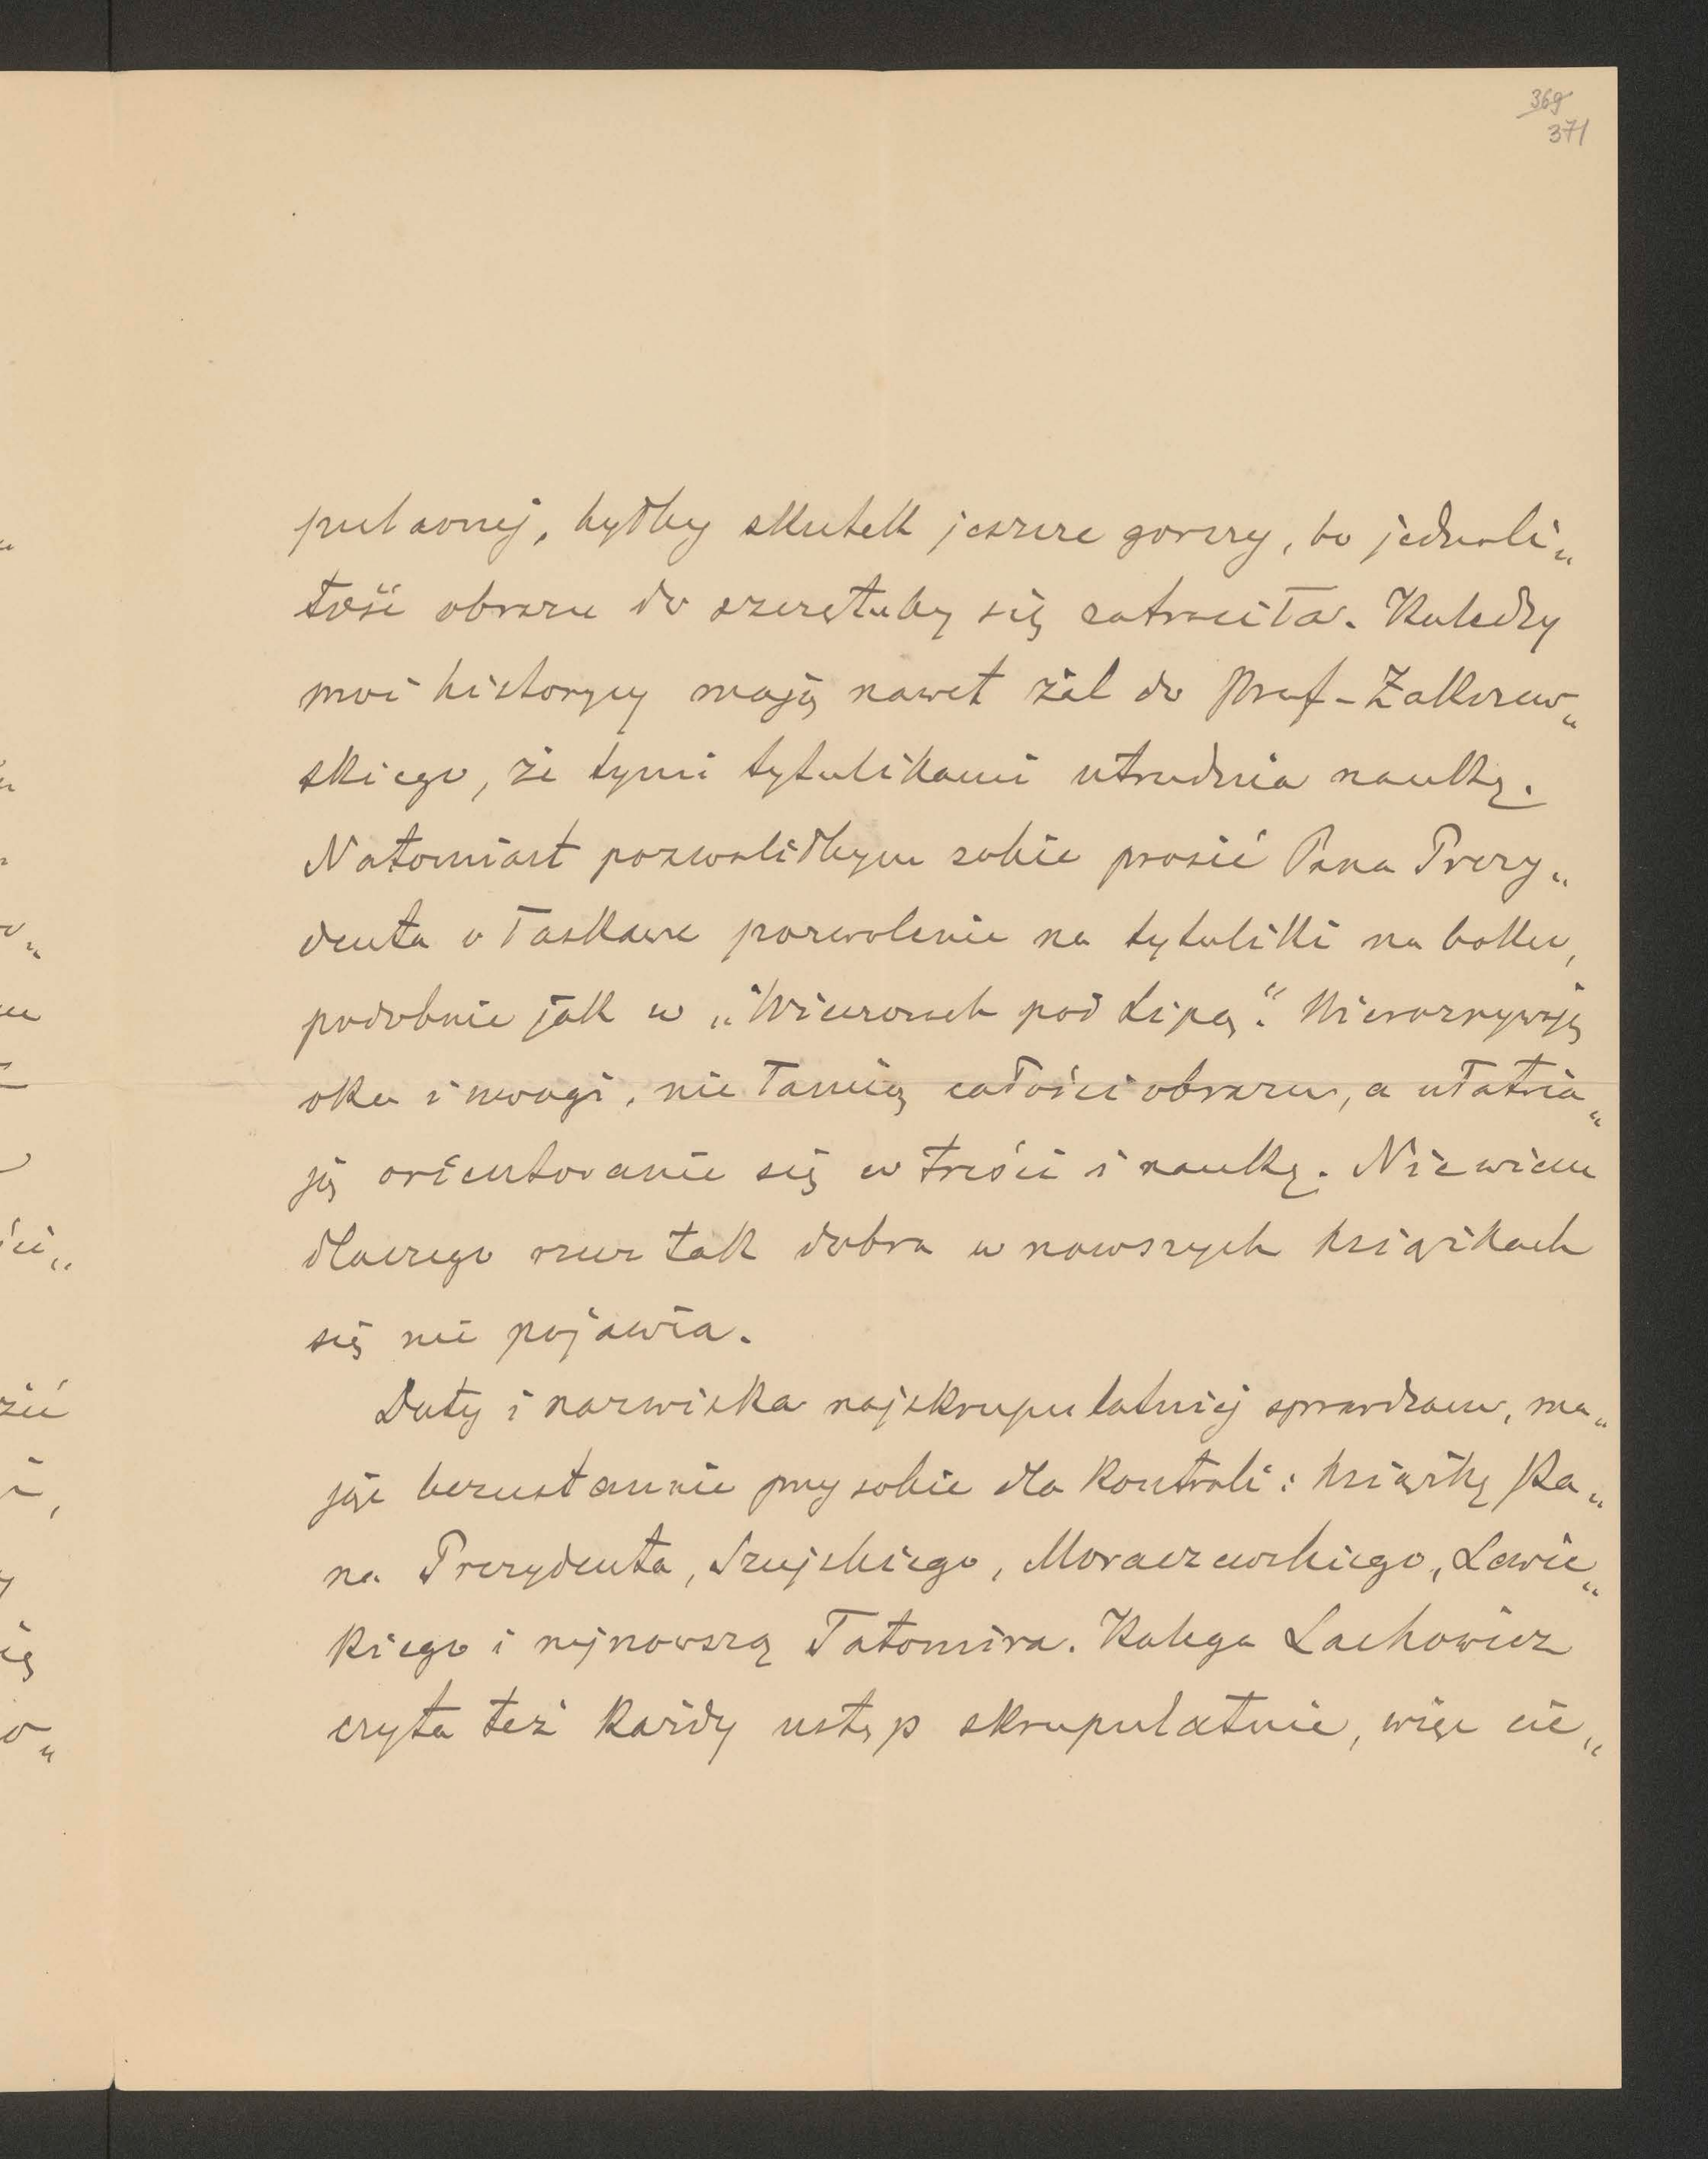 369
371
pularnej, byłby skutek jeszcze gorszy, bo jednoli„
tość obrazu do szczętuby się zatraciła. Koledzy
moi historycy mają nawet żal do Prof. Zakrzew„
skiego, że tymi tytulikami utrudnia naukę.
Natomiast pozwoliłbym sobie prosić Pana Prezy„
denta o łaskawe pozwolenie na tytuliki na boku,
podobnie jak w „Wieczorach pod Lipą“. Nierozrywają
oka i uwagi, nie łamią całości obrazu, a ułatwia„
ją orientowanie się w treści i naukę. Niewiem
dlaczego rzecz tak dobra w nowszych książkach
się nie pojawia.
Daty i nazwiska najskrupulatniej sprawdzam, ma„
jąc bezustannie przy sobie dla kontroli: książkę Pa„
na Prezydenta, Szujskiego, Moraczewskiego, Lewic„
kiego i najnowszą Tatomira. Kolega Lachowicz
czyta też każdy ustęp skrupulatnie, więc cie„